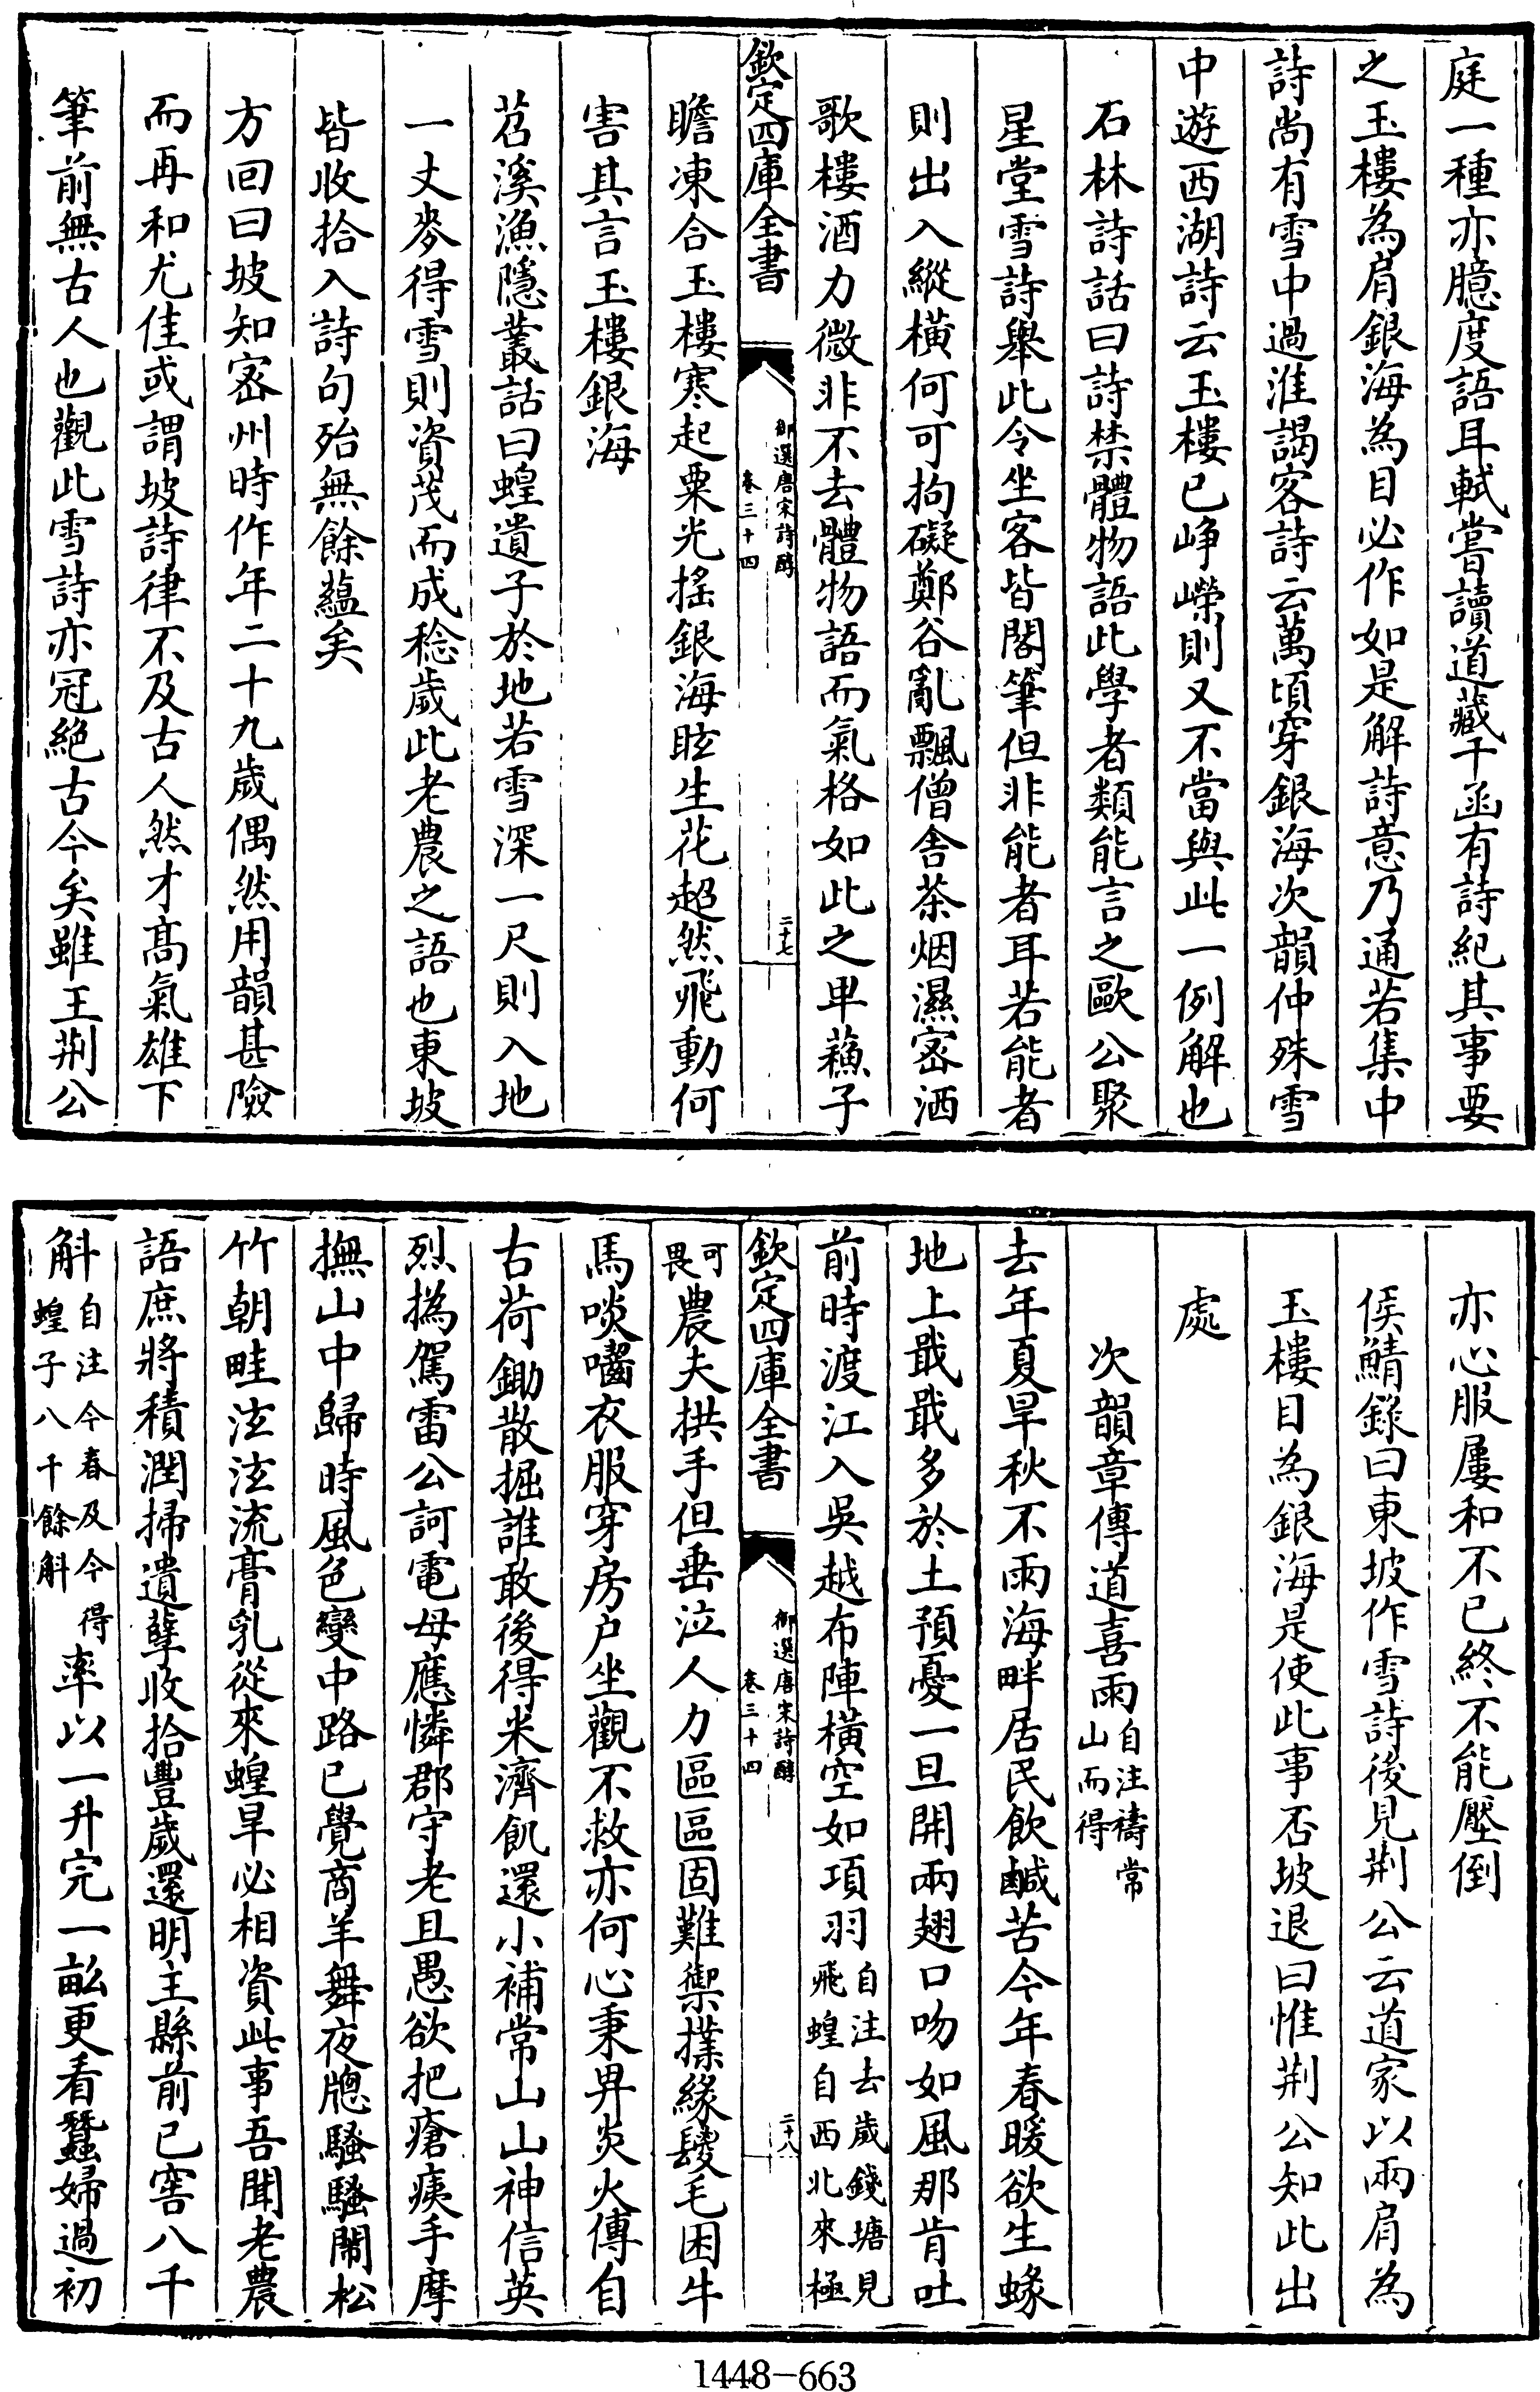 庭一種亦臆度語耳軾嘗讀道藏千函有詩紀其事要
之玉樓為肩銀海為目必作如是解詩意乃通若集中
詩尚有雪中過淮謁客詩云萬頃穿銀海次韻仲殊雪
中遊西湖詩云玉樓已崢嶸則又不當與此一例解也
石林詩話曰詩禁體物語此學者類能言之歐公聚
星堂雪詩舉此令坐客皆閣筆但非能者耳若能者
則出入縱橫何可拘礙鄭谷亂飄僧舍茶烟濕密洒
歌樓酒力微非不去體物語而氣格如此之卑蘇子
欽定四庫全書
御選唐宋詩醇
卷三十四
二十七
瞻凍合玉樓寒起粟光搖銀海眩生花超然飛動何
害其言玉樓銀海
苕溪漁隱叢話曰蝗遺子於地若雪深一尺則入地
一丈麥得雪則資茂而成稔歲此老農之語也東坡
皆收拾入詩句殆無餘蘊矣
方回曰坡知密州時作年二十九歲偶然用韻甚險
而再和尤佳或謂坡詩律不及古人然才高氣雄下
筆前無古人也觀此雪詩亦冠絕古今矣雖王荆公
亦心服屢和不已終不能壓倒
侯鯖錄曰東坡作雪詩後見荆公云道家以兩肩為
玉樓目為銀海是使此事否坡退曰惟荆公知此出
處
次韻章傳道喜雨自注禱常
山而得
去年夏旱秋不雨海畔居民飲鹹苦今年春暖欲生蝝
地上戢戢多於土預憂一旦開兩翅口吻如風那肯吐
前時渡江入吳越布陣橫空如項羽自注去歲錢塘見
飛蝗自西北來極
欽定四庫全書
御選唐宋詩醇
卷三十四
二十八
可
畏農夫拱手但垂泣人力區區固難禦撲緣鬉毛困牛
馬啖囓衣服穿房戶坐觀不救亦何心秉畀炎火傳自
古荷鋤散掘誰敢後得米濟飢還小補常山山神信英
烈撝駕雷公訶電母應憐郡守老且愚欲把瘡痍手摩
撫山中歸時風色變中路已覺商羊舞夜牕騷騷鬧松
竹朝畦泫泫流膏乳從來蝗旱必相資此事吾聞老農
語庶將積潤掃遺孽收拾豐歲還明主縣前已窖八千
斛自注今春及今得
蝗子八千餘斛率以一升完一畝更看蠶婦過初
1448-663